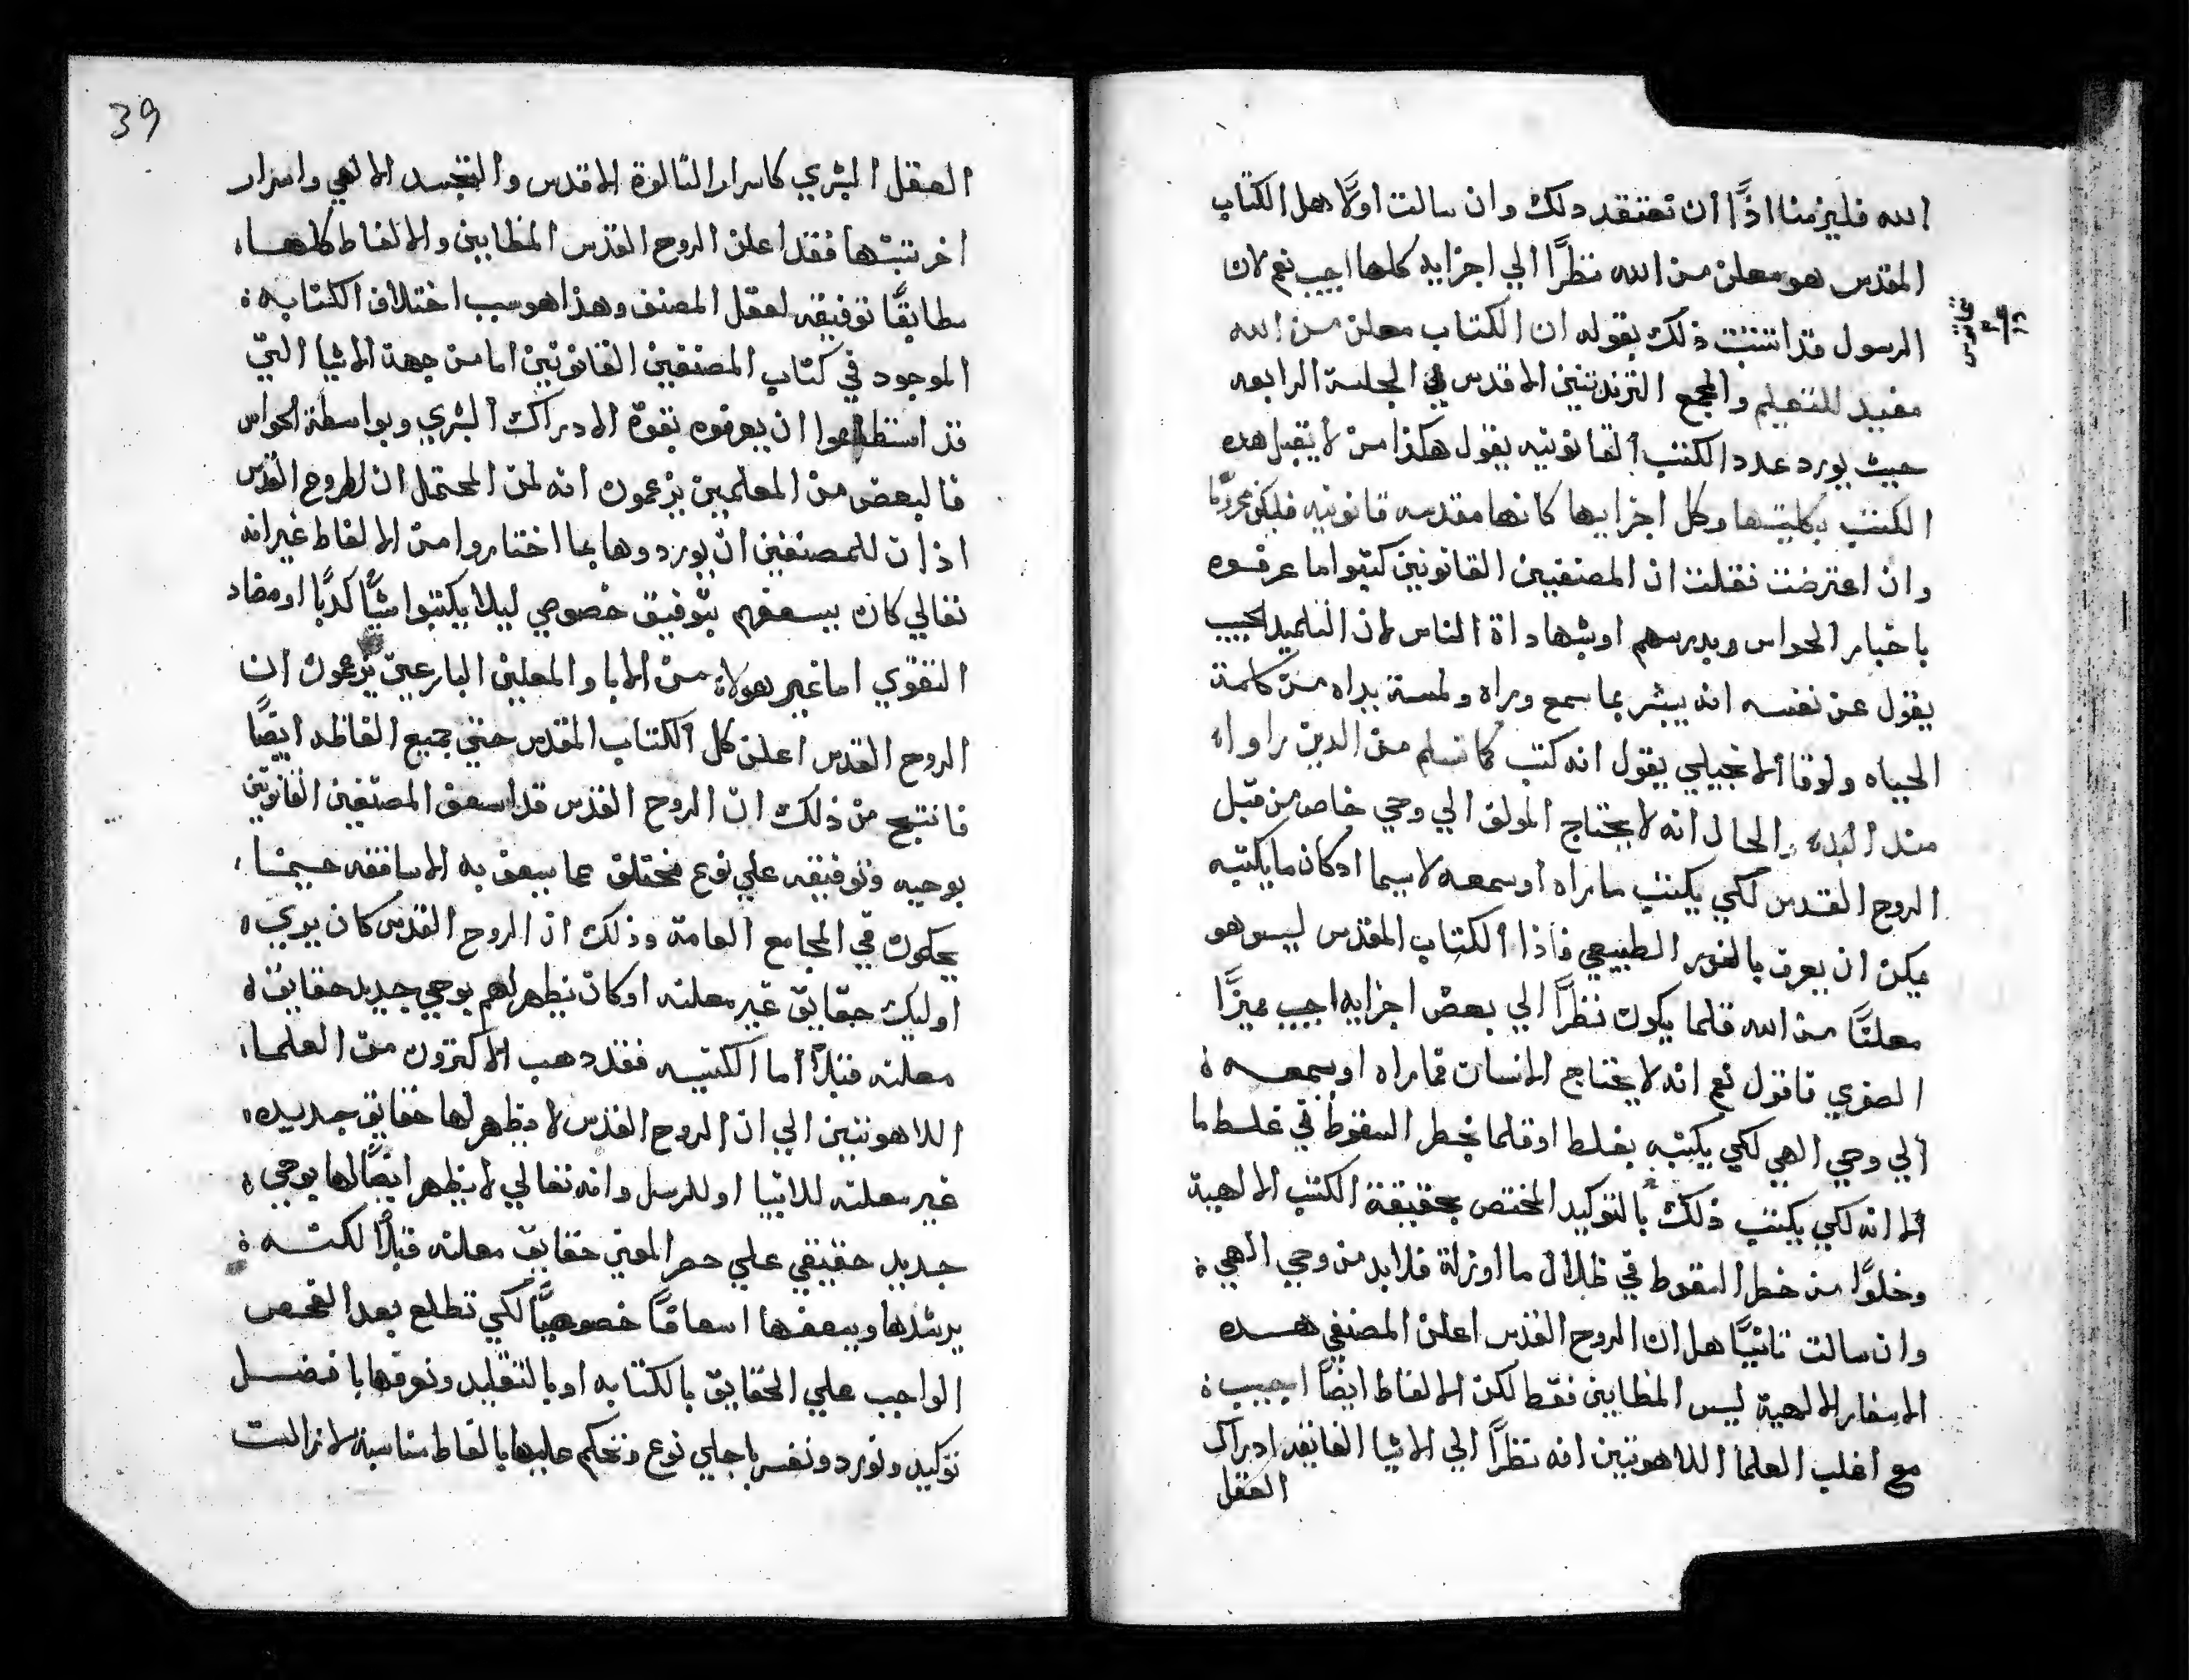 الله فليزمنا اذًا ان نعتقد دلك وان سالت اولًا هل الكتاب
المقدس هو معلن من الله نظرًا الي اجزايه كلها اجيب نعم لان
الرسول قد اتبت ذلك بقوله ان الكتاب معلن من الله
مفيد للتعليم والمجمع التريدنتيني الاقدس في الجلسة الرابعه
حيث يورد عدد الكتب القانونيه يقول هكذا من لا يقبل هده
الكتب بكليتها وكل اجزايها كانها مقدسه قانونيه فليكن محرومًا
وان اعترضت فقلت ان المصنفين القانونين كتبوا ما عرفوه
باخبار الحواس وبدرسهم او بشهاداة الناس لان التلميد الحبيب
يقول عن نفسه انه يبشر بما سمع وراه ولمسة يداه من كلمة
الحياه ولوقا الانجيلي يقول انه كتب كما تسلم من الدين راواه
مند البده والحال انه لا يحتاج المولف الي وحي خاص من قبل
الروح القدس لكي يكتب ما راه او سمعه لا سيما اد كان ما يكتبه
يمكن ان يعرف بالنور الطبيعي فاذا الكتاب المقدس ليس هو
معلنًا من الله قلما يكون نظرًا الي بعض اجزايه اجيب مميزًا
الصغري فاقول نعم انه لا يحتاج الانسان فيما راه او سمعه
الي وحي الهي لكي يكتبه بغلط او قلما بخطر السقوط في غلط ما
الا انه لكي يكتب ذلك بالتوكيد المختص بحقيقة الكتب الالهية
وخلوًا من خطر السقوط في ظلال ما او زلة فلا بد من وحي الهي
وان سالت تانيًا هل ان الروح القدس اعلن المصنفي هده
الاسفار الالهية ليس المظامين فقط لكن الالفاظ ايضًا اجيب
مع اغلب العلما اللاهوتين انه نظرًا الي الاشيا الفايقه ادراك
العقل
39
العقل البشري كاسرار التالوة الاقدس والتجسد الالهي واسرار
اخر تشبهها فقد اعلن الروح القدس المظامين والالفاظ كلها
مطابقًا توفيقه لعقل المصنف وهذا هو سبب اختلاف الكتابه
الموجود في كتاب المصنفين القانونين اما من جهة الاشيا التي
قد استطاعوا ان يعرفوه بقوة الادراك البشري وبواسطة الحواس
فالبعض من المعلمين يزعمون انه لمن المحتمل ان الروح القدس
اذ ان للمصنفين ان يوردوها بما اختاروا من الالفاظ غير انه
تعالي كان يسعفهم بتوفيق خصوصي ليلا يكتبوا شيًا كدبًا او مضاد
التقوي اما غير هولاء من الابا والمعلمين البارعين يزعمون ان
الروح القدس اعلن كل الكتاب المقدس حتي جميع الفاظه ايضًا
فانتبج من ذلك ان الروح القدس قد اسعف المصنفين القانونين
بوحيه وتوفيقه علي نوع مختلف عما يسعف به الاساقفه حيمنا
يحكمون في المجامع العامة وذلك ان الروح القدس كان يوحي
اوليك حقايق غير معلنه او كان يظهر لهم بوحي جديد حقايق
معلنه قبلًا اما الكنيسه فقد دهب الاكترون من العلما
اللاهوتين الي ان الروح القدس لا يظهر لها حقايق جديده
غير معلنه للانبيا او للرسل وانه تعالي لا يظهر ايضًا لها بوحي
جديد حقيقي علي حصر المعني حقايق معلنه قبلًا لكنه
يرشدها ويسعفها اسعافًا خصوصيًا لكي تطلع بعد الفحص
الواجب علي الحقايق بالكتابه او بالتقليد وتعرفها بافضل
توكيد وتورد وتفسر باجلي نوع وتحكم عليها بالفاظ مناسبة لا زالت